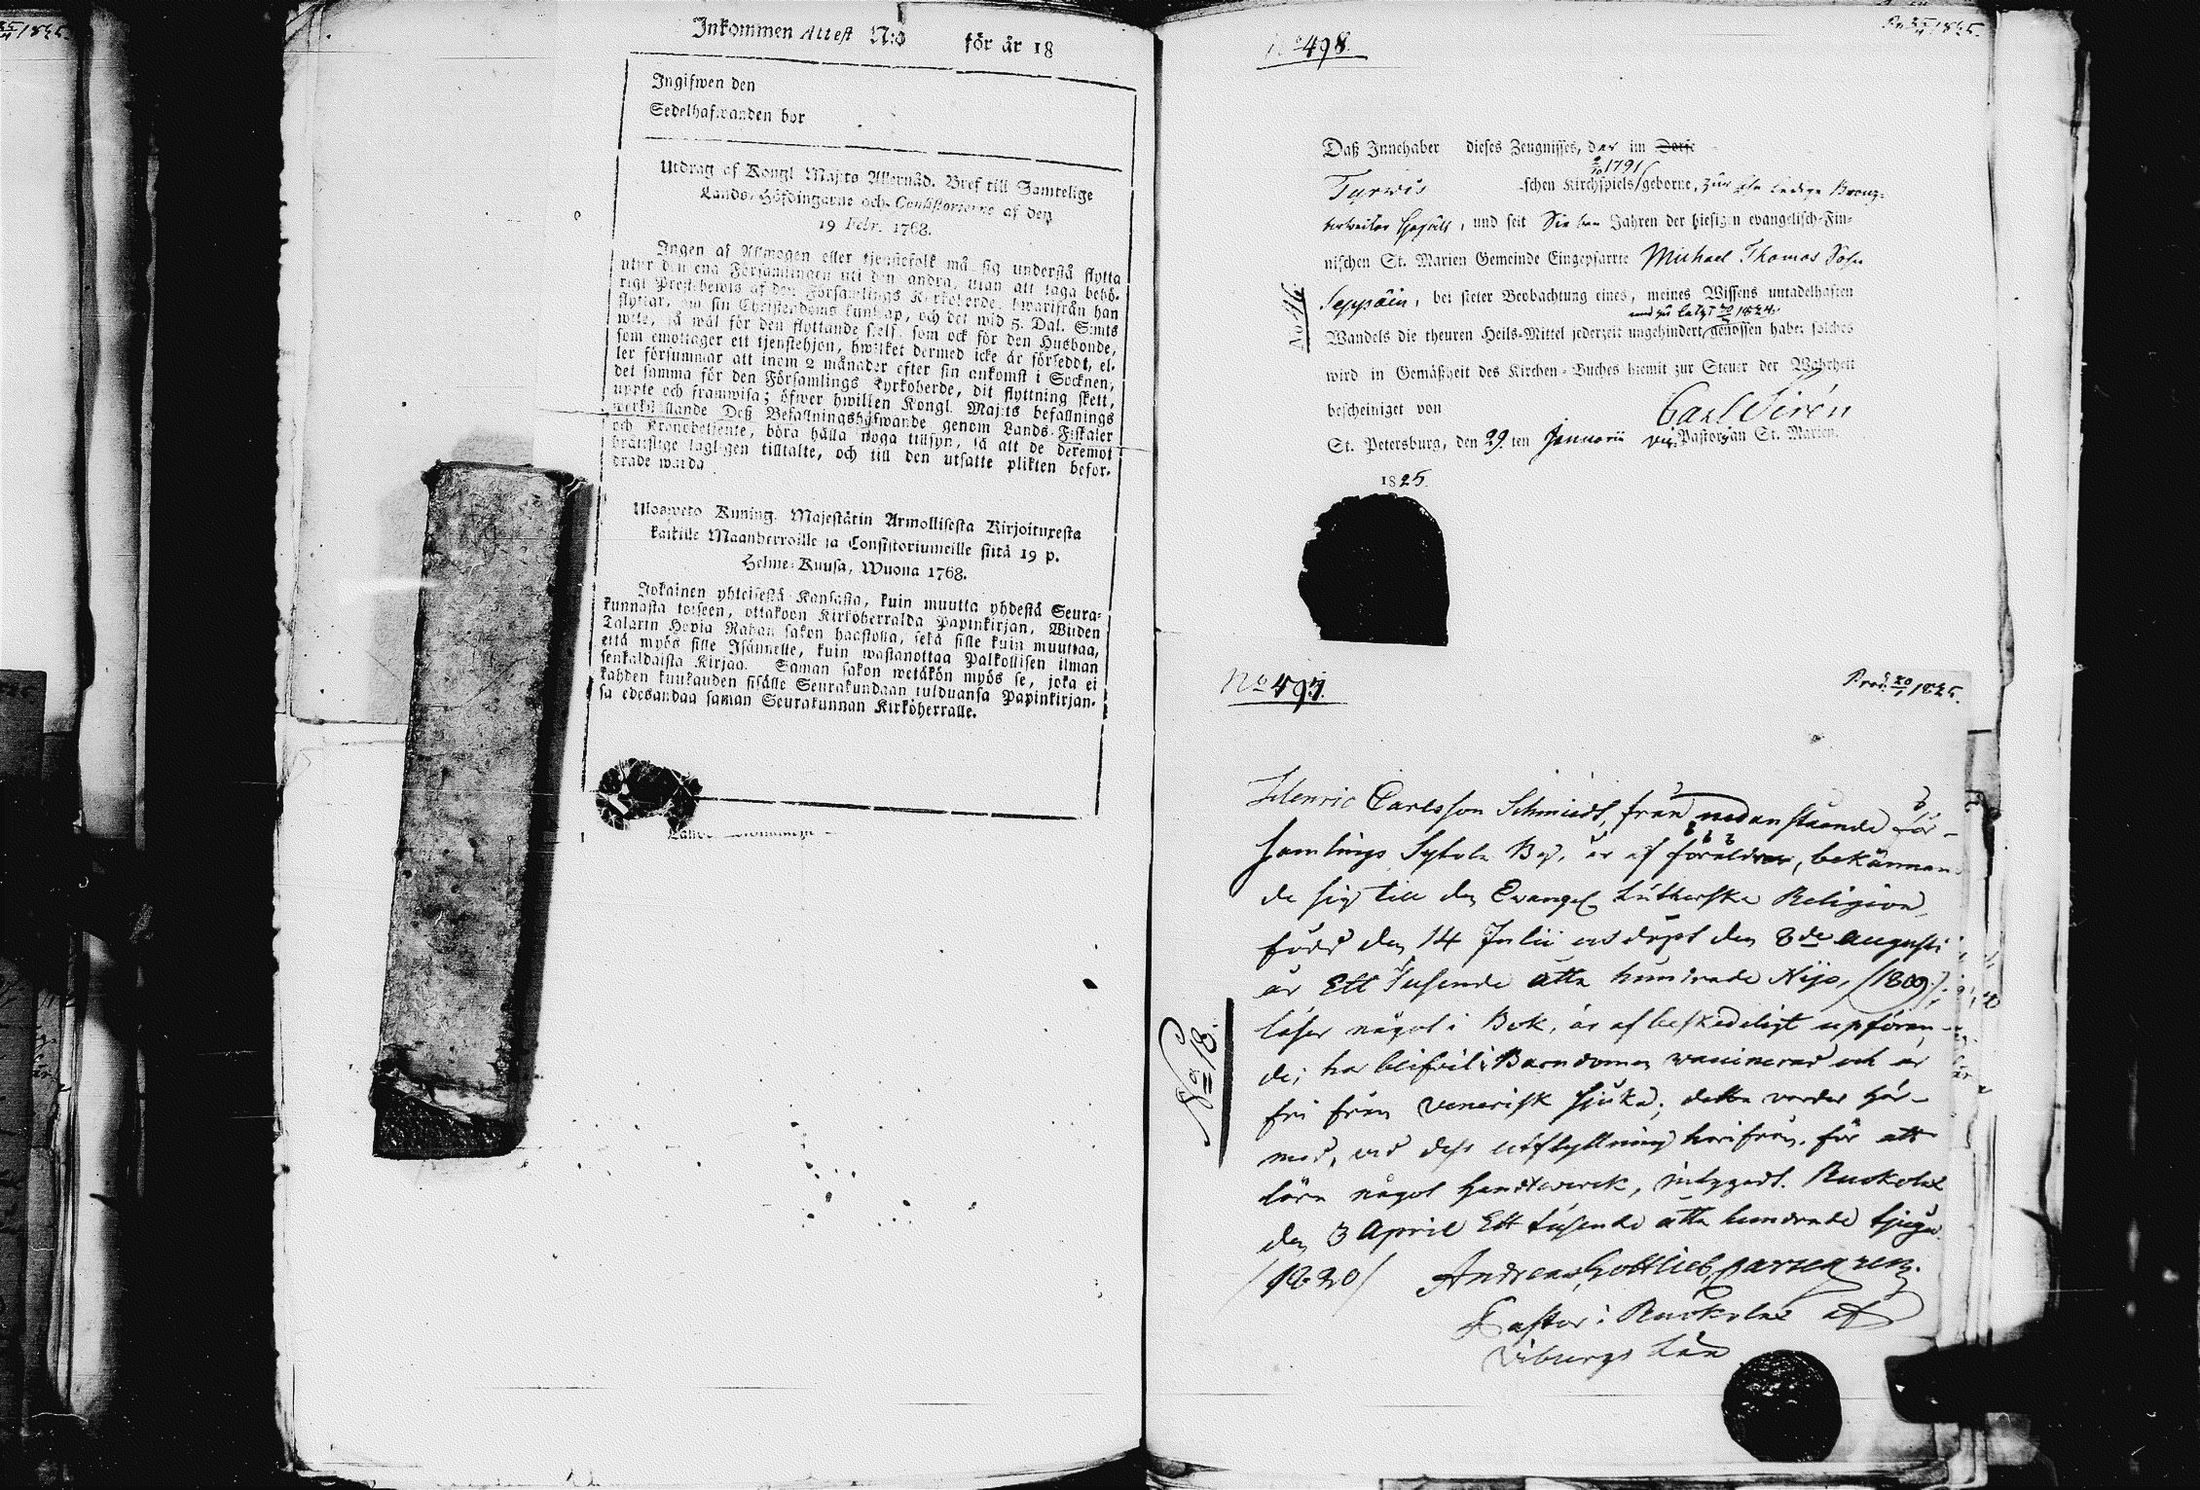 Inkommen Attest N:o för år 18
Ingifwen den
Sedelhafwanden bor
Utdrag af Kongl Maj:ts Allernåd. Bref till Samtelige
Lands-Höfdingarne och Consistorierne af den
19 Febr. 1768.
Ingen af Allmogen eller tjenstefolk må sig understå flytta
utur den ena Församlingen uti den andra, utan att taga behö-
rigt Prestebewis af den Församlings Kyrkoherde, hwarifrån han
flyttar, om sin Christendoms kunskap, och det wid 5. Dal. S:mts
wite, så wäl för den flyttande sjelf, som ock för den Husbonde,
som emottager ett tjenstehjon, hwilket dermed icke är försedt, el-
ler försummar att inom 2 månader efter sin ankomst i Socknen,
det samma för den Församlings Kyrkoherde, dit flyttning skett,
uppte och framwisa; öfwer hwilken Kongl. Maj:ts befallnings
werkställande Deß Befallningshafwande genom Lands-Fiskaler
och Kronobetjente, böra hålla noga tillsyn, så att de deremot
brottslige lagligen tilltalte, och till den utsatte plikten befor-
drade warda
Ulosweto Kuning. Majestätin Armollisesta Kirjoituxesta
kaikille Maanherroille ja Consistoriumeille siitä 19 p.
Helme-Kuusa, Wuona 1768.
Jokainen yhteisestä Kansasta, kuin muutta yhdestä Seura-
kunnasta toiseen, ottakoon Kirkoherralda Papinkirjan, Wiiden
Talarin Hopia Rahan sakon haastolla, sekä sille kuin muuttaa,
että myös sille Isännelle, kuin wastanottaa Palkollisen ilman
senkaldaista Kirjaa. Saman sakon wetäkön myös se, joka ei
kahden kuukauden sisälle Seurakundaan tulduansa Papinkirjan-
sa edesandaa saman Seurakunnan Kirkoherralle.
No 498.
Daß Innehaber dieses Zeugnisses, der im Dorfe
1791
Tyrwis -schen Kirchspiels geborne,
und seit Sieben Jahren der hiesigen evangelisch-Fin-
nischen St. Marien Gemeinde Eingepfarrte Michael Thomas Sohn
Seppäin, bei steter Beobachtung eines, meines Wissens untadelhaften
und zu letzt 1824
Wandels die theuren Heils-Mittel jederzeit ungehindert genossen habe: solches
wird in Gemäßheit des Kirchen-Buches hiemit zur Steuer der Wahrheit
bescheiniget von Carl Sirén
St. Petersburg, den 29.ten Januarii Pastor an St. Marien.
1825.
No 497.
Prod. 20/1 1825.
Henric Carlsson Schmiedt, från nedanstående För-
samlings Sykola By, är af föräldrar, bekännan-
de sig till den Evangel. Lutherska Religion,
född den 14 Julii och döpt den 3de Augusti
år Ett Tusende åtta hundrade Nijo, (1809);
läser något i Bok, är af beskedeligt uppföran-
de; har blifvit i Barndomen vaccinerad och är
fri från Venerisk sjuka; detta varder här-
med, vid dess utflyttning härifrån, för att
lära något Handtwerck, intygadt. Ruokolax
den 3 April Ett tusende åtta hundrade tjugu
/1820/ Andreas Gottlieb
Pastor i Ruokolax af
Viburgs Län
No 18.